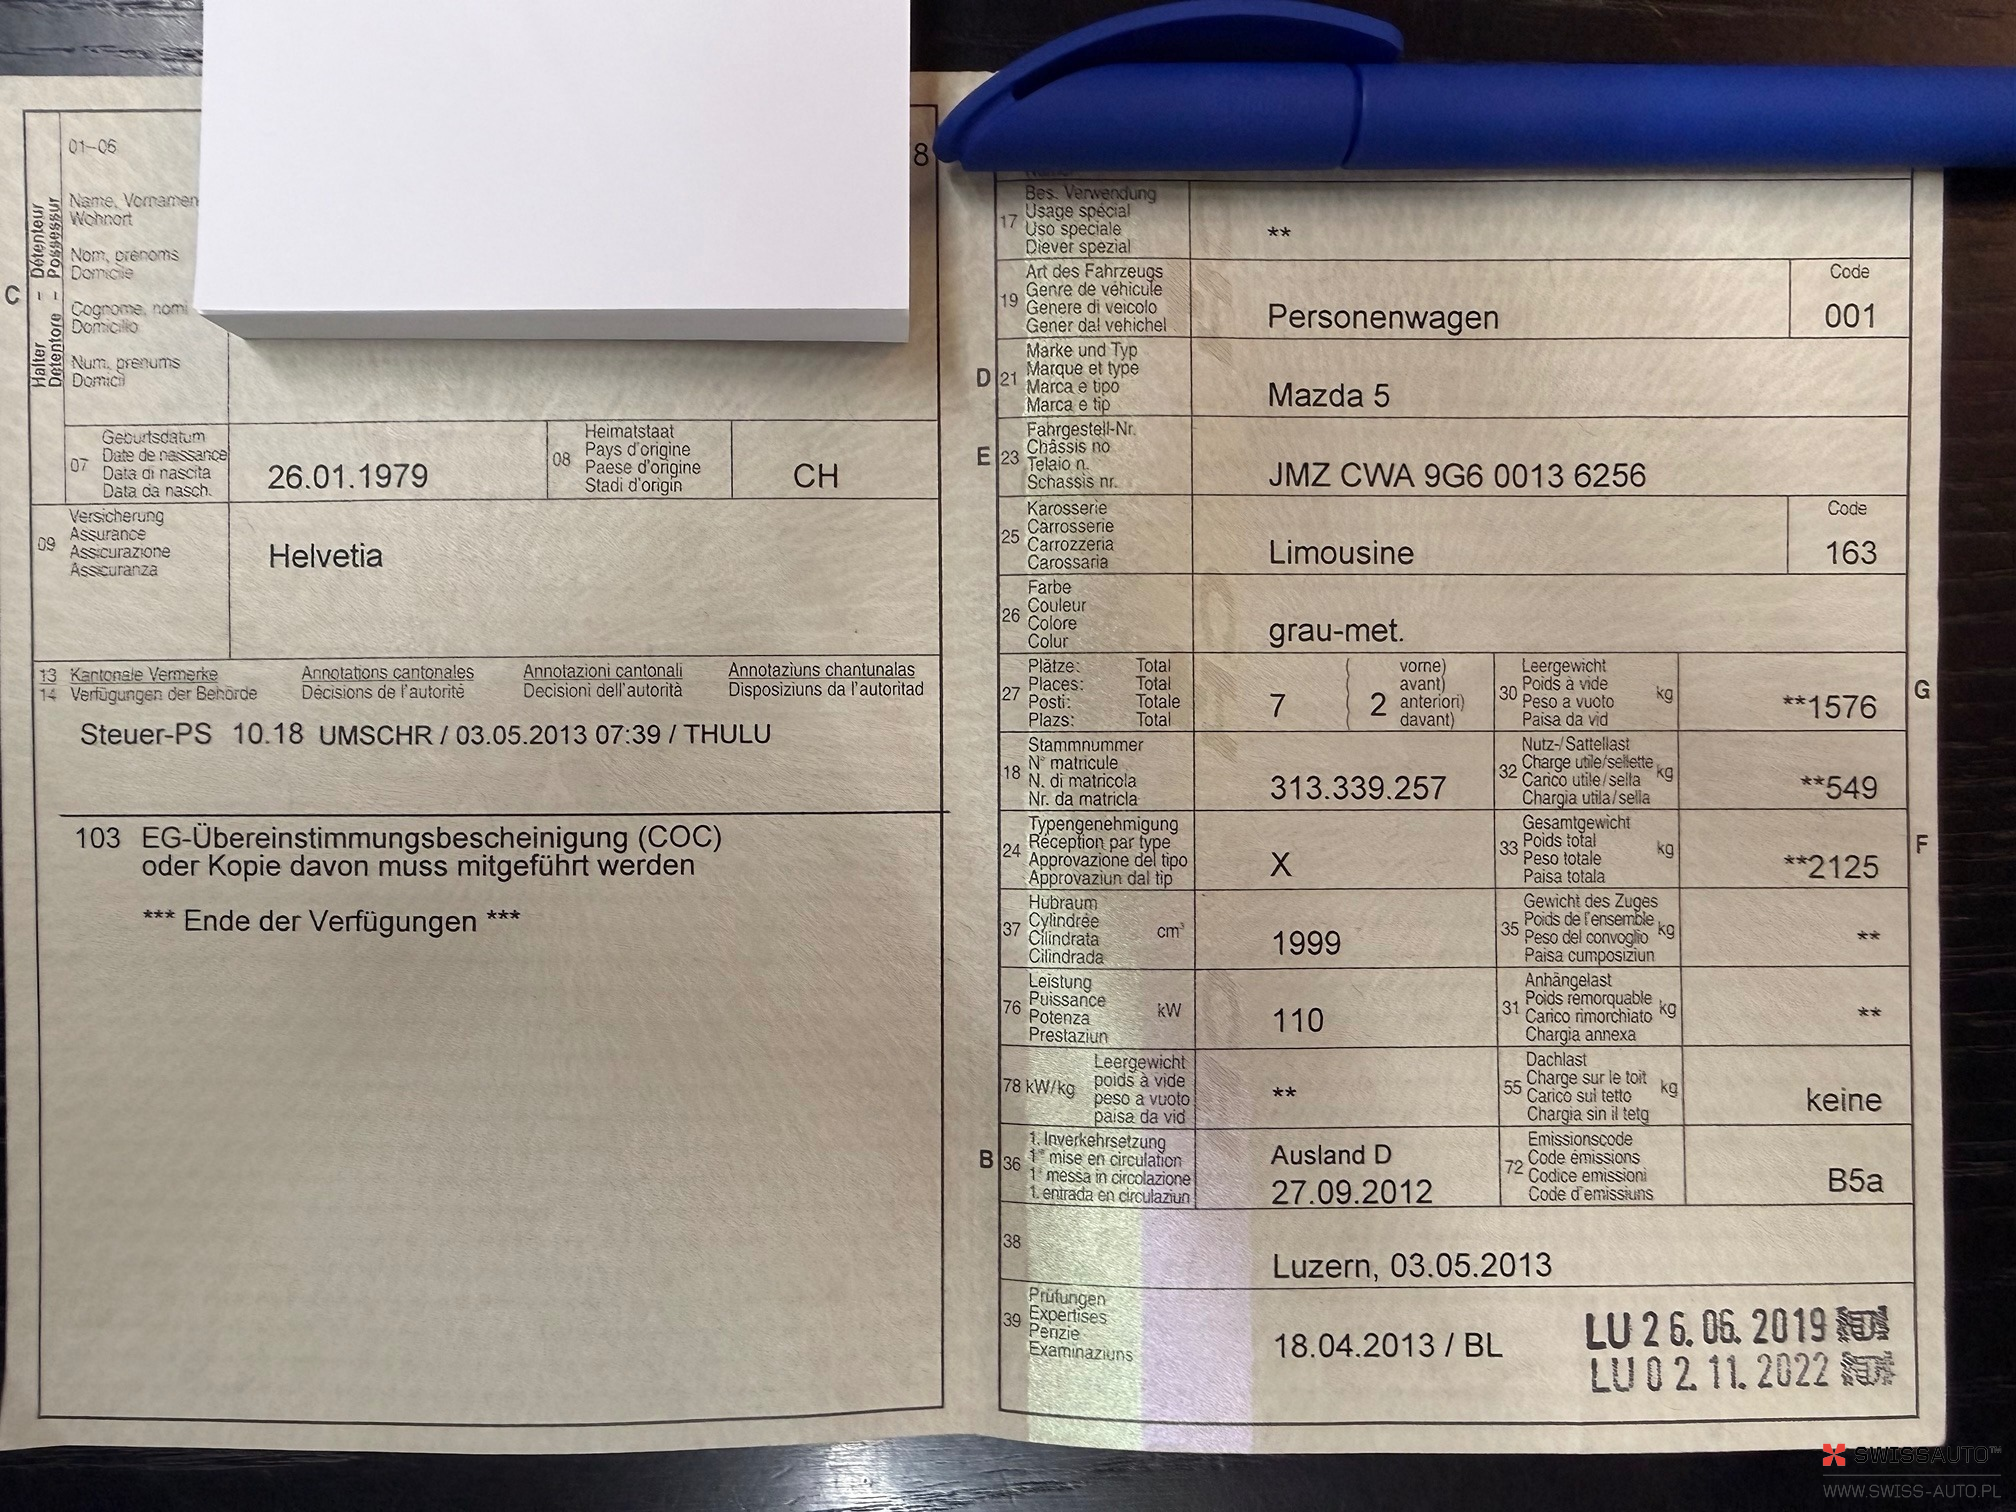 C
Halter – Détenteur
Detentore – Possessur
01–06
8
Name, Vornamen
Wohnort
Nom, prénoms
Domicile
Cognome, nomi
Domicilio
Num, prenums
Domicil
07
Geburtsdatum
Date de naissance
Data di nascita
Data da nasch.
26.01.1979
08
Heimatstaat
Pays d'origine
Paese d'origine
Stadi d'origin
CH
09
Versicherung
Assurance
Assicurazione
Assicuranza
Helvetia
13 Kantonale Vermerke Annotations cantonales Annotazioni cantonali Annotaziuns chantunalas
14 Verfügungen der Behörde Décisions de l'autorité Decisioni dell'autorità Disposiziuns da l'autoritad
Steuer-PS 10.18 UMSCHR / 03.05.2013 07:39 / THULU
103 EG-Übereinstimmungsbescheinigung (COC)
oder Kopie davon muss mitgeführt werden
*** Ende der Verfügungen ***
17
Bes. Verwendung
Usage spécial
Uso speciale
Diever spezial
**
19
Art des Fahrzeugs
Genre de véhicule
Genere di veicolo
Gener dal vehichel
Personenwagen
Code
001
D 21
Marke und Typ
Marque et type
Marca e tipo
Marca e tip
Mazda 5
E 23
Fahrgestell-Nr.
Châssis no
Telaio n.
Schassis nr.
JMZ CWA 9G6 0013 6256
25
Karosserie
Carrosserie
Carrozzeria
Carossaria
Limousine
Code
163
26
Farbe
Couleur
Colore
Colur
grau-met.
27
Plätze: Total
Places: Total
Posti: Totale
Plazs: Total
7
( 2
vorne)
avant)
anteriori)
davant)
30
Leergewicht
Poids à vide
Peso a vuoto
Paisa da vid
kg
**1576
G
18
Stammnummer
N° matricule
N. di matricola
Nr. da matricla
313.339.257
32
Nutz-/Sattellast
Charge utile/sellette
Carico utile/sella
Chargia utila/sella
kg
**549
24
Typengenehmigung
Réception par type
Approvazione del tipo
Approvaziun dal tip
X
33
Gesamtgewicht
Poids total
Peso totale
Paisa totala
kg
**2125
F
37
Hubraum
Cylindrée
Cilindrata
Cilindrada
cm³
1999
35
Gewicht des Zuges
Poids de l'ensemble
Peso del convoglio
Paisa cumposiziun
kg
**
76
Leistung
Puissance
Potenza
Prestaziun
kW
110
31
Anhängelast
Poids remorquable
Carico rimorchiato
Chargia annexa
kg
**
78 kW/kg
Leergewicht
poids à vide
peso a vuoto
paisa da vid
**
55
Dachlast
Charge sur le toit
Carico sul tetto
Chargia sin il tetg
kg
keine
B 36
1. Inverkehrsetzung
1re mise en circulation
1a messa in circolazione
1. entrada en circulaziun
Ausland D
27.09.2012
72
Emissionscode
Code émissions
Codice emissioni
Code d'emissiuns
B5a
38
Luzern, 03.05.2013
39
Prüfungen
Expertises
Perizie
Examinaziuns
18.04.2013 / BL
LU 26.06.2019
LU 02.11.2022
SWISSAUTO™
WWW.SWISS-AUTO.PL